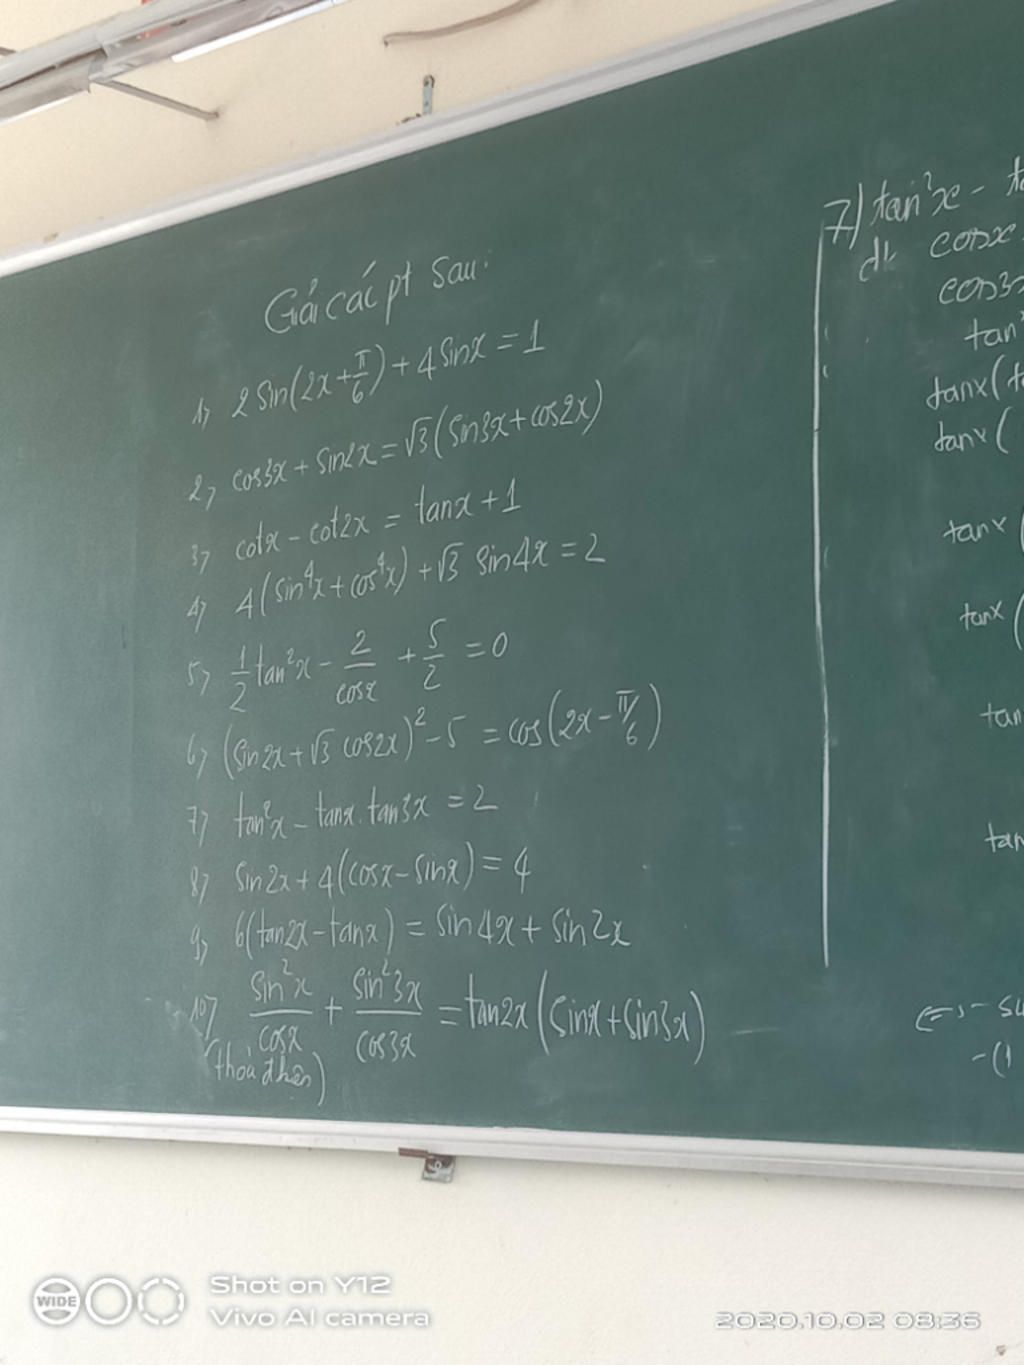 Giải các pt sau:
1) 2 sin(2x + π/6) + 4 sinx = 1
2) cos3x + sin2x = √3 (sin3x + cos2x)
3) cotx - cot2x = tanx + 1
4) 4(sin⁴x + cos⁴x) + √3 sin4x = 2
5) 1/2 tan²x - 2/cosx + 5/2 = 0
6) (sin2x + √3 cos2x)² - 5 = cos(2x - π/6)
7) tan²x - tanx.tan3x = 2
8) sin2x + 4(cosx - sinx) = 4
9) 6(tan2x - tanx) = sin4x + sin2x
10) sin²x/cosx + sin²3x/cos3x = tan2x (sinx + sin3x)
7) tan²x - ta
đk cosx
cos3x
tan²
tanx(t
tanx(
tanx(
tanx(
tan
tan
<=> - su
-(1
WIDE
Shot on Y12
Vivo AI camera
2020.10.02 08:36